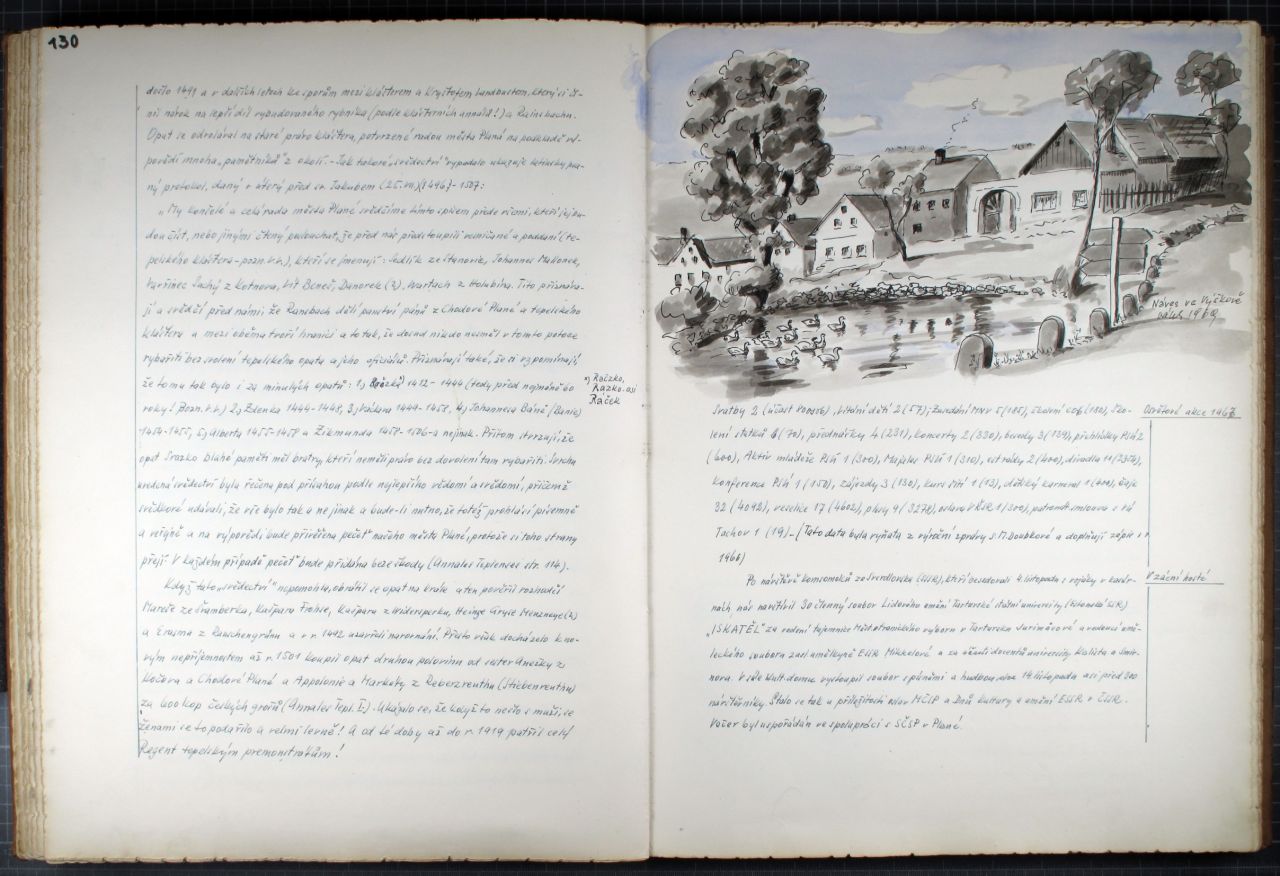 130
došlo 1491 a v dalších letech ke sporům mezi klášterem a Kryštofem Landvastem, který si či-
nil nárok na lepší díl vybudovaného rybníka (podle klášterních annálů!) a Rainsbachu.
Opat se odvolával na staré právo kláštera, potvrzené radou města Plané na podkladě vý-
povědí mnoha "pamětníků" z okolí. - Jak takové "svědectví" vypadalo ukazuje latinsky psa-
ný protokol, daný v úterý před sv. Jakubem (25.VII.) 1496 - 1507:
"My konšelé a celá rada města Plané svědčíme tímto spisem přede všemi, kteří jej bu-
dou číst, nebo jinými čtený poslouchat, že před nás předstoupili robotní a poddaní (te-
pelského kláštera - pozn. k.k.), kteří se jmenují: Sedlík ze Stanovic, Johannes Mallonek,
Vavřinec Suchý z Kotnova, Vít Beneš, Danorek (?), Wartsch z Holubína. Tito přiznáva-
jí a svědčí před námi, že Ransbach dělí panství pánů z Chodové Plané a tepelského
kláštera a mezi oběma tvoří hranici a to tak, že dosud nikdo nesměl v tomto potoce
rybařiti bez svolení tepelského opata a jeho oficiálů. Přiznávají také, že si vzpomínají,
že tomu tak bylo i za minulých opatů: 1.) 1412 - 1444 (tedy před nejméně 60
roky! Pozn. k.k.) 2.) Zdenka 1444-1448, 3.) Václava 1449-1453, 4.) Johannesa
1454-1455, 5.) Alberta 1455-1458 a Zikmunda 1458-1506 - a nejinak. Přitom stvrzují, že
opat Srazko blahé paměti měl bratry, kteří neměli právo bez dovolení tam rybařiti. Svrchu
uvedená svědectví byla řečena pod přísahou podle nejlepšího vědomí a svědomí, přičemž
svědkové udávali, že vše bylo tak a ne jinak a bude-li nutno, že totéž prohlásí písemně
a veřejně a na výpovědi bude přivěšena pečeť našeho města Plané, protože si toho strany
přejí. V každém případě pečeť bude přidána beze škody (Annales Teplenses str. 114).
Když tato "svědectví" nepomohla, obrátil se opat na krále a ten pověřil rozhodčí
Mareše ze Šramberka, Kašpara Frohse, Kašpara z Widersperku, Heinze
a Erasma z Rauschengrünu a v r. 1492 uzavřeli narovnání. Přesto však docházelo k no-
vým nepříjemnostem až r. 1501 koupil opat druhou polovinu od sester Anežky z
Kočova a Chodové Plané a Appolonie a Markéty z Reberzreuthu (Stiebenreuthu)
za 600 kop českých grošů (Annales Tepl. I.). Ukázalo se, že když to nešlo s muži, se
ženami se to podařilo a velmi levně! A od té doby až do r. 1919 patřil celý
Regent tepelským premonstrátům!
x) Račzko,
Razko-asi
Raček
Náves ve Výškově
Svatby 2 (účast Vítání dětí 2 (57); Zasedání MNV 5 (185), školení (180), Ško-
lení statků 6 (70), přednášky 4 (231), koncerty 2 (330), besedy 3 (139), přehlídky PSH 2
(400), Aktiv mládeže PSH 1 (300), Majáles PSH 1 (310), estrády 2 (400), divadla 11 (2354),
konference PSH 1 (150), zájezdy 3 (130), kurs šití 1 (13), dětský karneval 1 (400), čaje
32 (4092), veselice 17 (4602), plesy 9 (3278), oslava VŘSR 1 (300), patronát. smlouva s
Tachov 1 (19) - (Tato data byla vyňata z výroční zprávy s. M. Doubkové a doplňují zápis z r.
1966)
Osvětové akce 1967
Po návštěvě komsomolců ze Sverdlovska (SSSR), kteří besedovali 4. listopadu s vojáky v kasár-
nách nás navštívil 30 členný soubor Lidového umění Tartuské státní university (Estonská SSR)
"ISKATĚL" za vedení tajemnice Měst. stranického výboru v Tartusku Jurimäeové a vedoucí umě-
leckého souboru zasl. umělkyně ESSR Mikkelové a za účasti docentů university Kalita a Smir-
nova. V sále kult. domu vystoupil soubor s písněmi a hudbou dne 14. listopadu asi před 300
návštěvníky. Stalo se tak u příležitosti oslav MČSP a Dnů kultury a umění ESSR v ČSSR.
Večer byl uspořádán ve spolupráci s SČSP v Plané.
Vzácní hosté